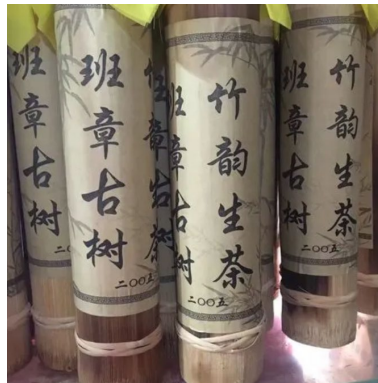 班章古树
二〇〇五
班章古树
竹韵生茶
二〇〇五
班章古树
竹韵生茶
二〇〇五
班章古树
竹韵生茶
二〇〇五